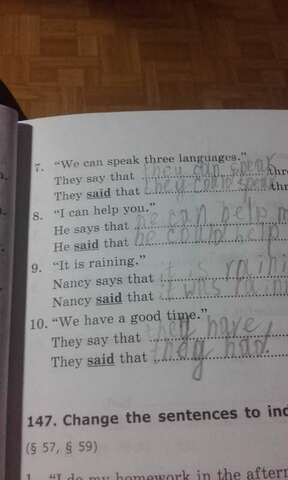 7. "We can speak three languages."
They say that they can speak thr
They said that they could speak thr
8. "I can help you."
He says that he can help m
He said that he could help
9. "It is raining."
Nancy says that it is raini
Nancy said that it was raini
10. "We have a good time."
They say that they have
They said that they had
147. Change the sentences to ind
(§ 57, § 59)
1. "I do my homework in the aftern